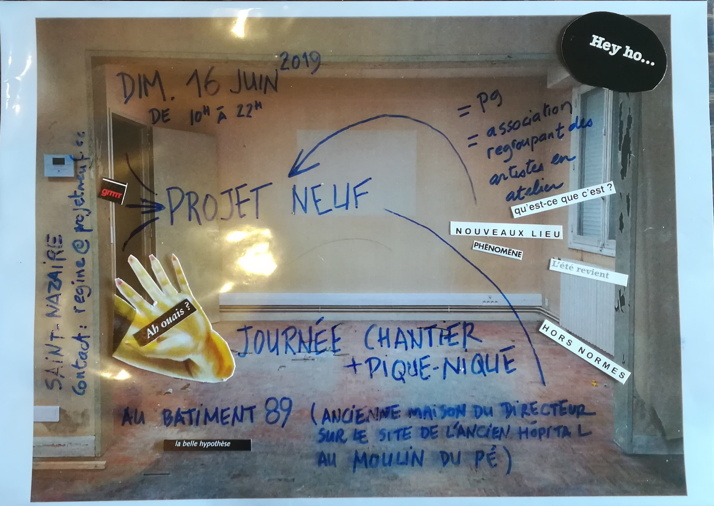 Hey ho...
DIM. 16 JUIN 2019
DE 10H À 22H
= P9
= association
regroupant des
artistes en
atelier
qu'est-ce que c'est ?
grrrr
PROJET NEUF
NOUVEAUX LIEU
PHÉNOMÈNE
L'été revient
HORS NORMES
Ah ouais ?
SAINT-NAZAIRE
Contact : regine@projetneuf.cc
JOURNÉE CHANTIER
+ PIQUE-NIQUE
AU BATIMENT 89 (ANCIENNE MAISON DU DIRECTEUR
SUR LE SITE DE L'ANCIEN HÔPITAL
AU MOULIN DU PÉ)
la belle hypothèse